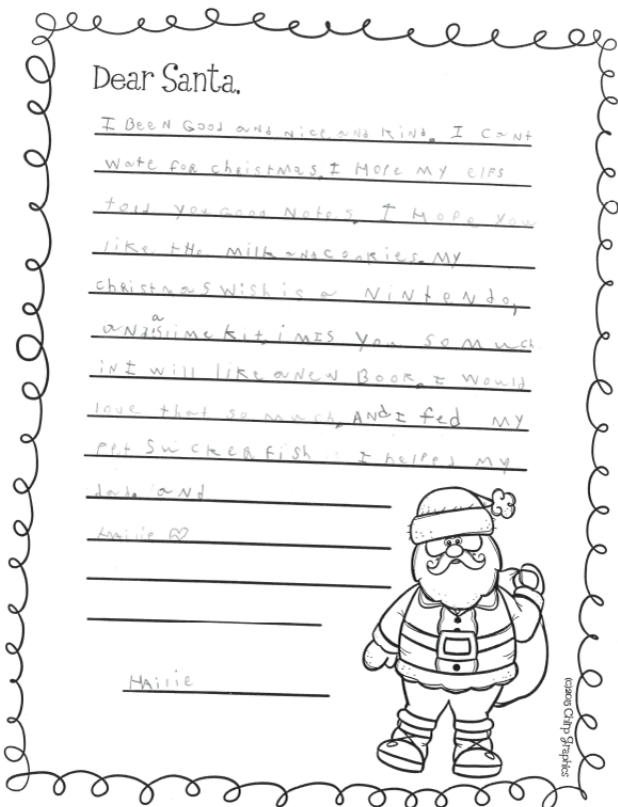 Dear Santa,
I BeeN Good aNd Nice aNd kiNd. I CaNt
wate foR chRistmas. I Hope MY elfs
told you Good Notes. I Hope You
like tHe Milk aNd Cookies. MY
chRistmas wish is a NiNteNdo,
aNd a slime kit. i mIS You so Much
iN I will like a New Book. I Would
love that so much. ANd I fed MY
pet SuckeRfish I helped MY
dad. aNd
Hailie ♡
Hailie
(c)2015 Chirp Graphics